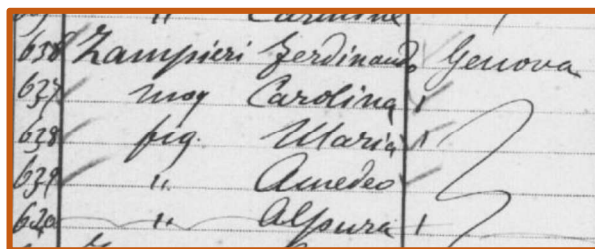 " Carmine
636 Zampieri Ferdinando Genova
637 mog Carolina "
638 fig. Maria "
639 " Amedeo
640 " "